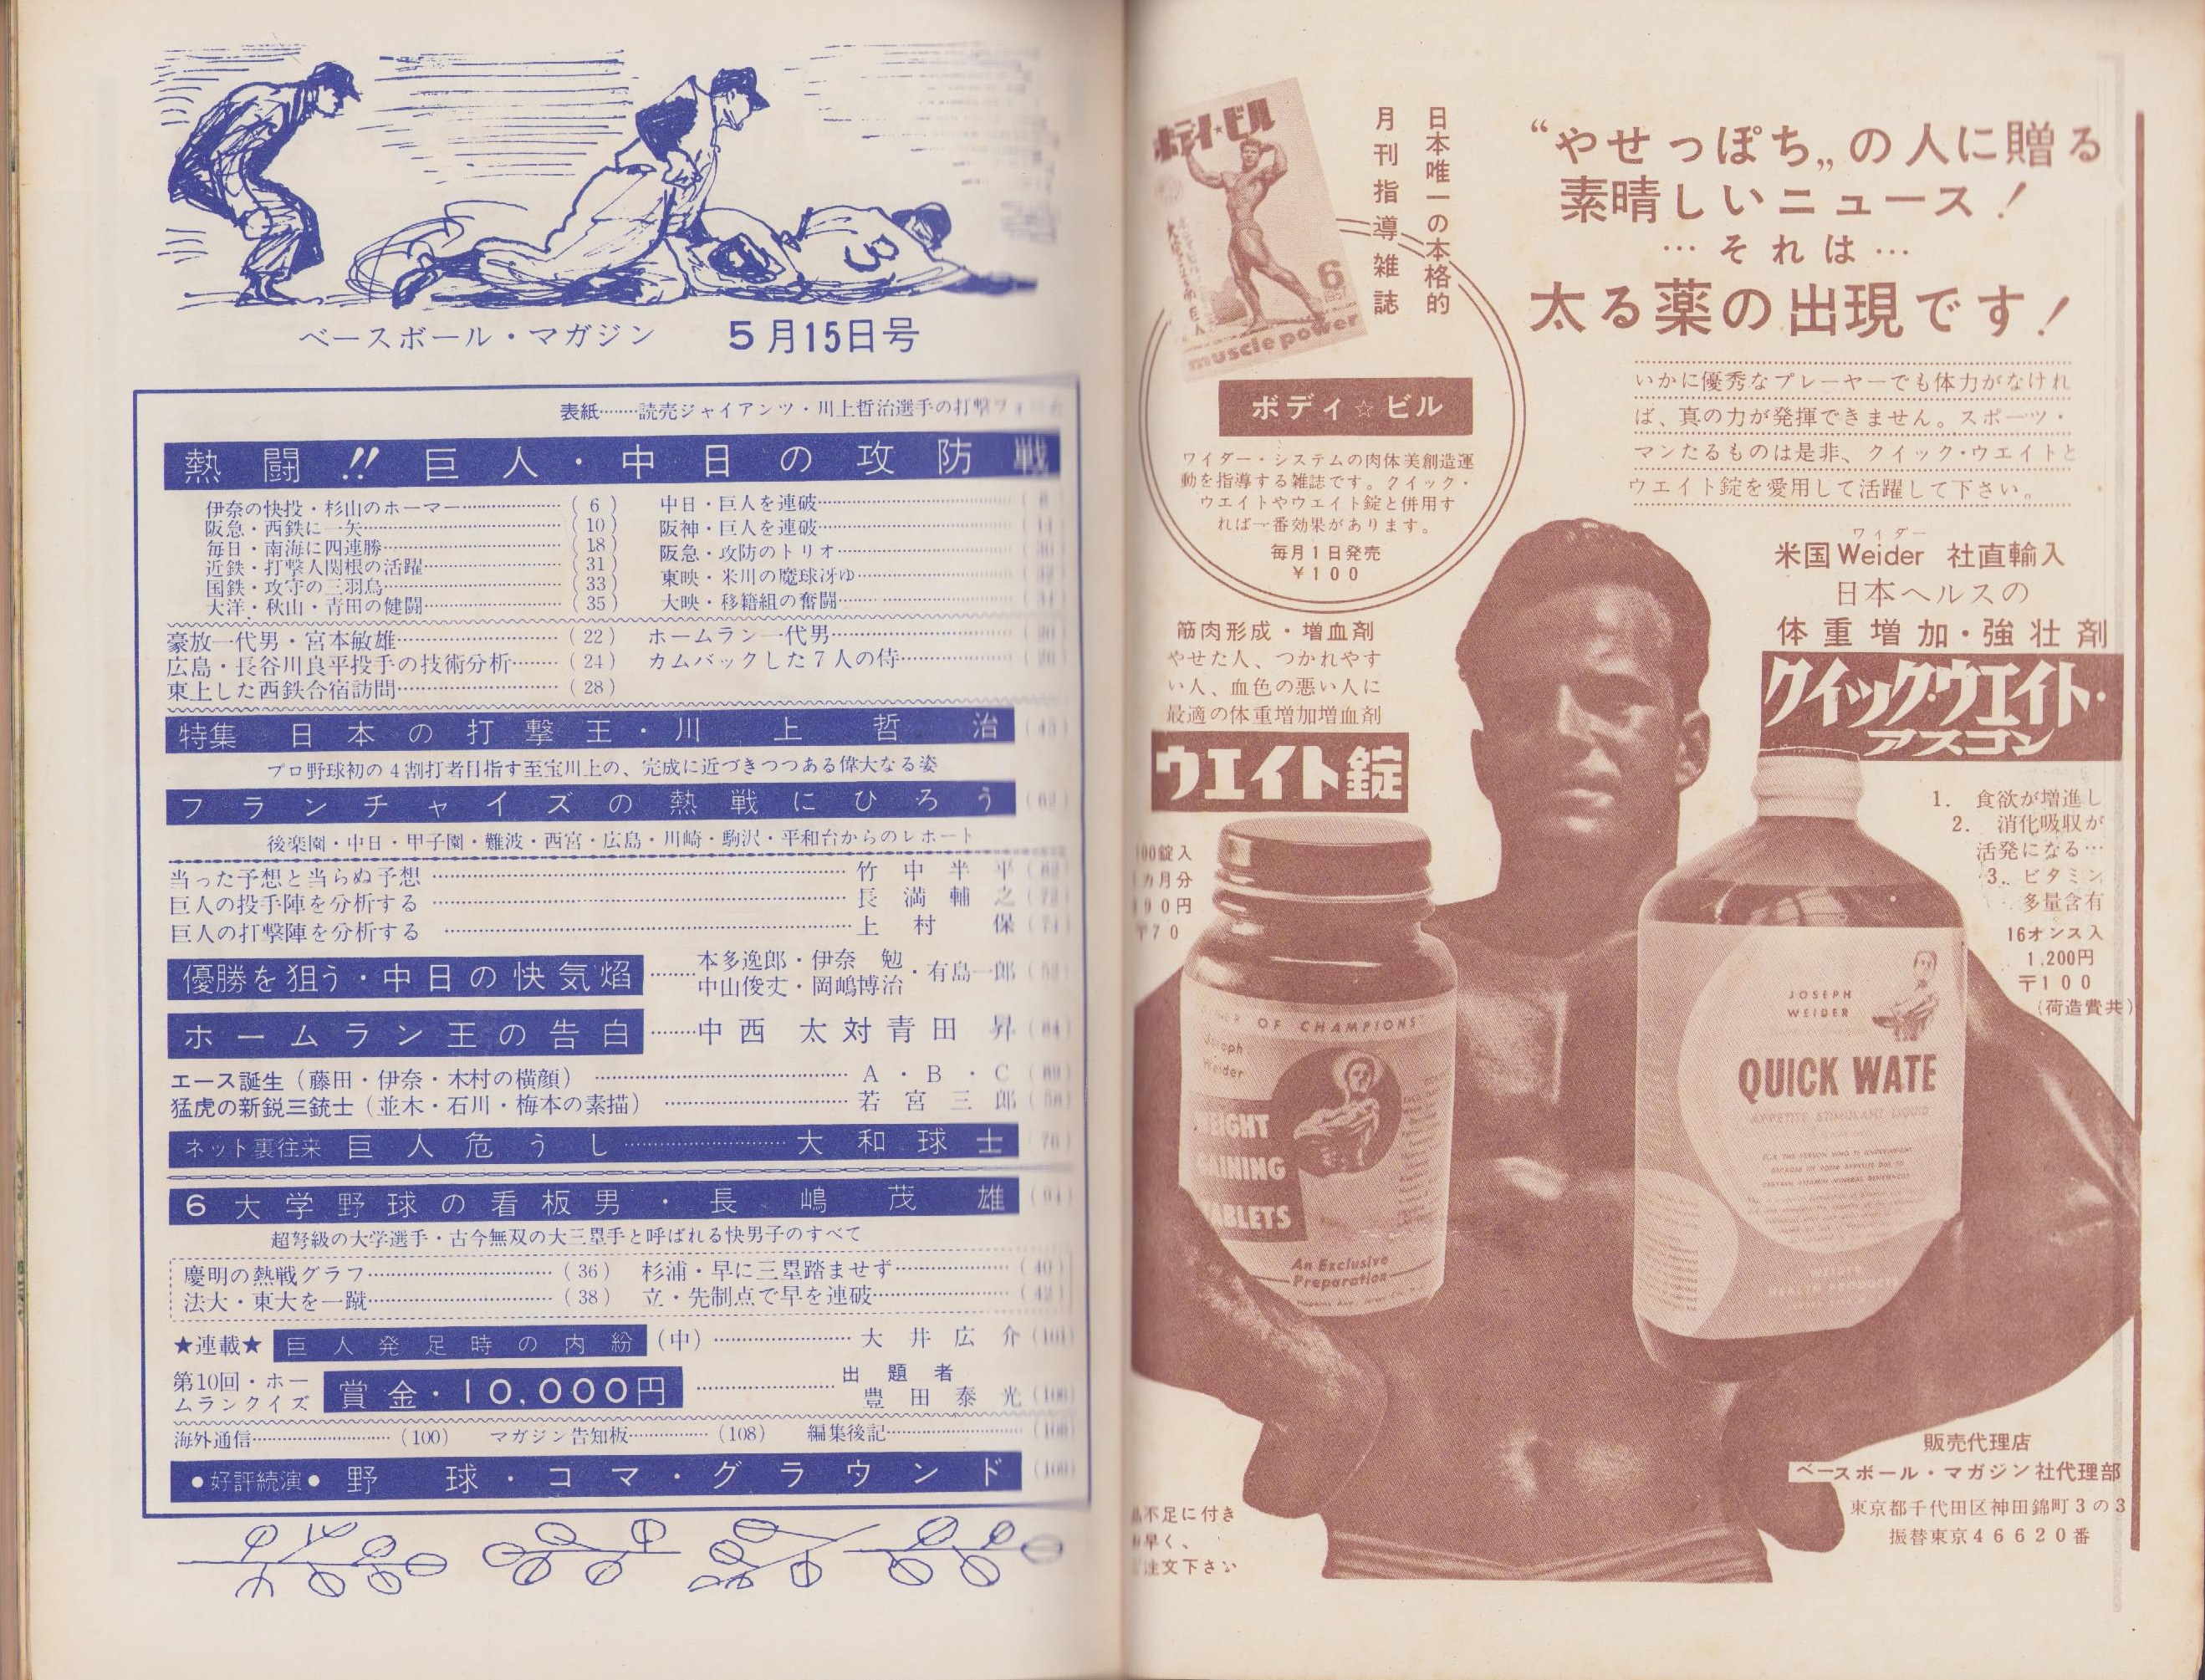 ベースボール・マガジン 5月15日号
表紙……読売ジャイアンツ・川上哲治選手の打撃
熱闘!!巨人・中日の攻防戦
伊奈の快投・杉山のホーマー……(6)
阪急・西鉄に一矢……(10)
毎日・南海に四連勝……(18)
近鉄・打撃人関根の活躍……(31)
国鉄・攻守の三羽烏……(33)
大洋・秋山・青田の健闘……(35)
中日・巨人を連破……
阪神・巨人を連破……
阪急・攻防のトリオ……
東映・米川の魔球冴ゆ……
大映・移籍組の奮闘……
豪放一代男・宮本敏雄……(22)
広島・長谷川良平投手の技術分析……(24)
東上した西鉄合宿訪問……(28)
ホームラン一代男……
カムバックした7人の侍……
特集 日本の打撃王・川上哲治
プロ野球初の4割打者目指す至宝川上の、完成に近づきつつある偉大なる姿
フランチャイズの熱戦にひろう
後楽園・中日・甲子園・難波・西宮・広島・川崎・駒沢・平和台からのレポート
当った予想と当らぬ予想……竹中半平
巨人の投手陣を分析する……長満輔之
巨人の打撃陣を分析する……上村保
優勝を狙う・中日の快気焰……本多逸郎・伊奈 勉
中山俊丈・岡嶋博治・有島一郎
ホームラン王の告白……中西 太対青田 昇
エース誕生(藤田・伊奈・木村の横顔)……A・B・C
猛虎の新鋭三銃士(並木・石川・梅本の素描)……若宮三郎
ネット裏往来 巨人危うし……大和球士
6大学野球の看板男・長嶋茂雄
超弩級の大学選手・古今無双の大三塁手と呼ばれる快男子のすべて
慶明の熱戦グラフ……(36)
法大・東大を一蹴……(38)
杉浦・早に三塁踏ませず……(40)
立・先制点で早を連破……(42)
★連載★ 巨人発足時の内紛(中)……大井広介
第10回・ホームランクイズ 賞金・10,000円……出題者 豊田泰光
海外通信……(100) マガジン告知板……(108) 編集後記……
●好評続演● 野球・コマ・グラウンド
“やせっぽち„の人に贈る
素晴しいニュース!
…それは…
太る薬の出現です!
いかに優秀なプレーヤーでも体力がなけれ
ば、真の力が発揮できません。スポーツ・
マンたるものは是非、クイック・ウエイトと
ウエイト錠を愛用して活躍して下さい。
日本唯一の本格的
月刊指導雑誌
ボディ★ビル
6
1957
muscle power
ボディ☆ビル
ワイダー・システムの肉体美創造運
動を指導する雑誌です。クイック・
ウエイトやウエイト錠と併用す
れば一番効果があります。
毎月1日発売
¥100
ワイダー
米国Weider 社直輸入
日本ヘルスの
体重増加・強壮剤
クイック・ウエイト・
アスコン
1. 食欲が増進し
2. 消化吸収が
活発になる…
3. ビタミン
多量含有
16オンス入
1,200円
〒100
(荷造費共)
筋肉形成・増血剤
やせた人、つかれやす
い人、血色の悪い人に
最適の体重増加増血剤
ウエイト錠
00錠入
カ月分
90円
〒70
OF CHAMPIONS
Joseph
Weider
WEIGHT
GAINING
TABLETS
An Exclusive
Preparation
JOSEPH
WEIDER
QUICK WATE
APPETITE STIMULANT LIQUID
FOR THE PERSON WHO IS UNDERWEIGHT
BECAUSE OF POOR APPETITE DUE TO
CERTAIN VITAMIN MINERAL DEFICIENCIES
不足に付き
早く、
注文下さい
販売代理店
ベースボール・マガジン社代理部
東京都千代田区神田錦町3の3
振替東京46620番